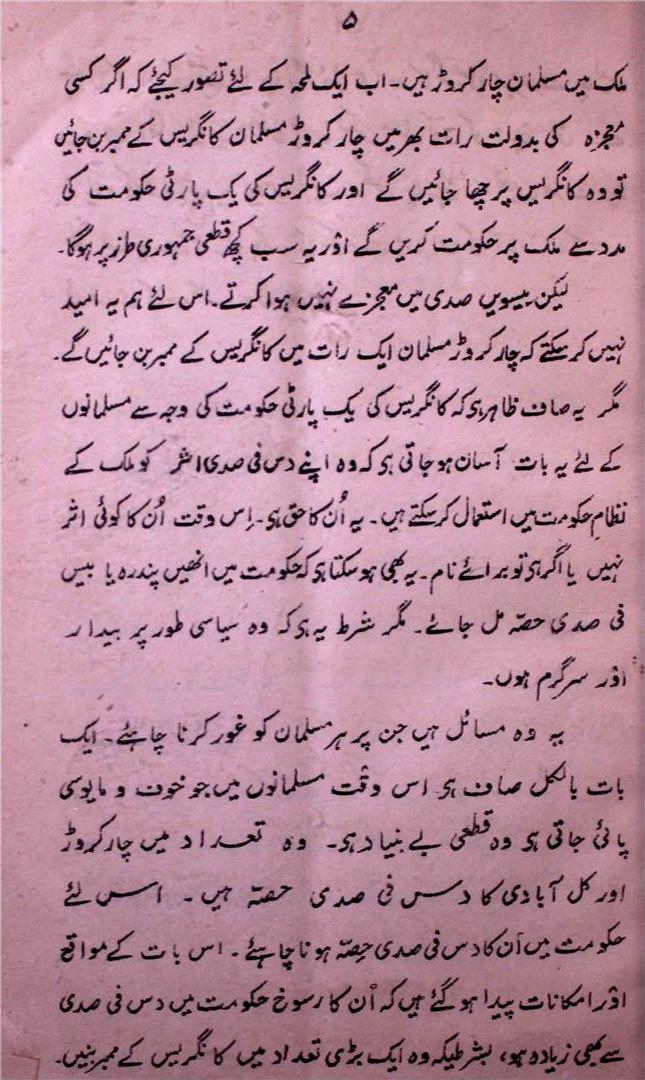 ۵
ملک میں مسلمان چار کروڑ ہیں۔ اب ایک لمحہ کے لئے تصور کیجئے کہ اگر کسی
معجزہ کی بدولت رات بھر میں چار کروڑ مسلمان کانگریس کے ممبر بن جائیں
تو وہ کانگریس پر چھا جائیں گے اور کانگریس کی یک پارٹی حکومت کی
مدد سے ملک پر حکومت کریں گے اور یہ سب کچھ قطعی جمہوری طرز پر ہوگا۔
لیکن بیسویں صدی میں معجزے نہیں ہوا کرتے۔ اس لئے ہم یہ امید
نہیں کر سکتے کہ چار کروڑ مسلمان ایک رات میں کانگریس کے ممبر بن جائیں گے۔
مگر یہ صاف ظاہر ہی کہ کانگریس کی یک پارٹی حکومت کی وجہ سے مسلمانوں
کے لئے یہ بات آسان ہو جاتی ہی کہ وہ اپنے دس فی صدی اثر کو ملک کے
نظام حکومت میں استعمال کر سکتے ہیں۔ یہ اُن کا حق ہی۔ اِس وقت اُن کا کوئی اثر
نہیں یا اگر ہی تو برائے نام۔ یہ بھی ہو سکتا ہی کہ حکومت میں انھیں پندرہ یا بیس
فی صدی حصّہ مل جائے۔ مگر شرط یہ ہی کہ وہ سیاسی طور پر بیدار
اور سرگرم ہوں۔
یہ وہ مسائل ہیں جن پر ہر مسلمان کو غور کرنا چاہئے۔ ایک
بات بالکل صاف ہی اس وقت مسلمانوں میں جو خوف و مایوسی
پائی جاتی ہی وہ قطعی بے بنیاد ہی۔ وہ تعداد میں چار کروڑ
اور کل آبادی کا دس فی صدی حصّہ ہیں۔ اس لئے
حکومت میں اُن کا دس فی صدی حِصّہ ہونا چاہئے۔ اس بات کے مواقع
اور امکانات پیدا ہو گئے ہیں کہ اُن کا رسوخ حکومت میں دس فی صدی
سے بھی زیادہ ہو، بشرطیکہ وہ ایک بڑی تعداد میں کانگریس کے ممبر بنیں۔